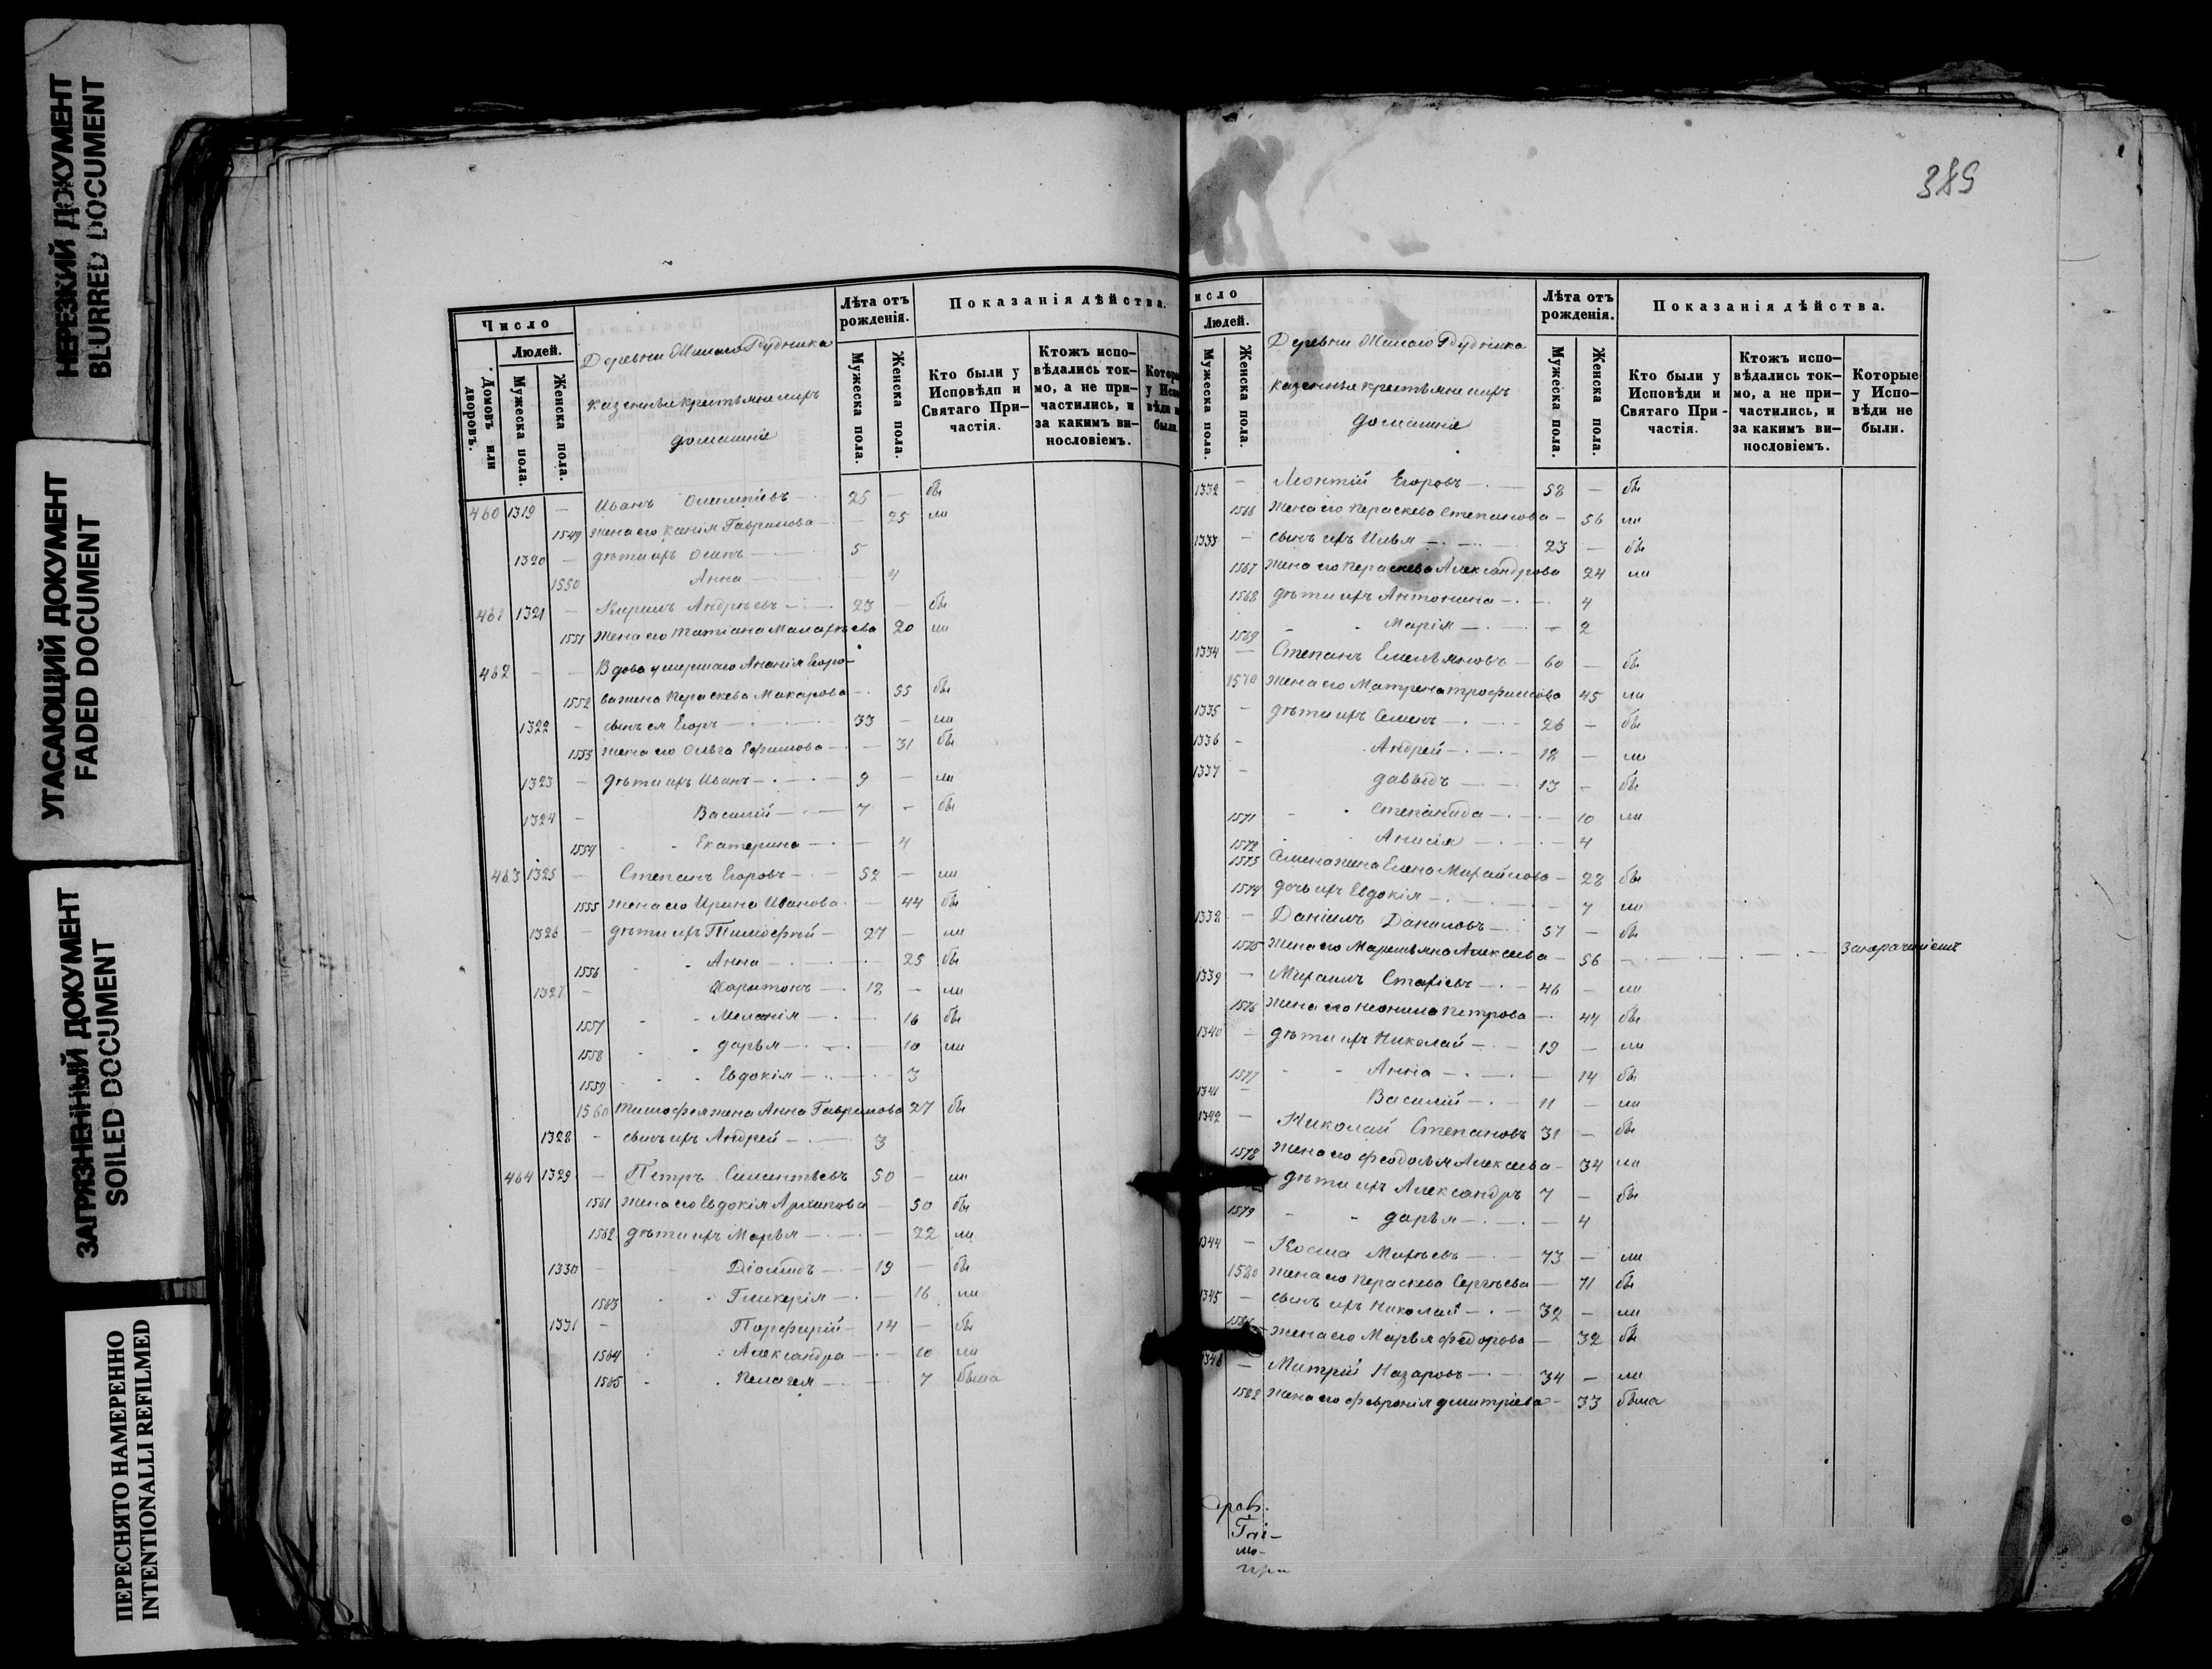 НЕРЕЗКИЙ ДОКУМЕНТ
BLURRED DOCUMENT
УГАСАЮЩИЙ ДОКУМЕНТ
FADED DOCUMENT
ЗАГРЯЗНЕННЫЙ ДОКУМЕНТ
SOILED DOCUMENT
ПЕРЕСНЯТО НАМЕРЕННО
INTENTIONALLI REFILMED
Число
Людей.
Домовъ или дворовъ.
Мужеска пола.
Женска пола.
Деревни Рудника
казенныя крестьяне ихъ
домашніе
Лѣта отъ рожденія.
Мужеска пола.
Женска пола.
Показанія дѣйства.
Кто были у Исповѣди и Святаго Причастія.
Ктожъ исповѣдались токмо, а не причастились, и за какимъ винословіемъ.
460 1319 — Иванъ — 25 — бы
1549 жена его Ксенія Гаврилова — — 25 ли
1320 — дѣти ихъ Осипъ — 5
1550 Анна — 4
461 1321 — Кирилъ Андрѣевъ — 23 — бы
1551 жена его Татіана 20 ли
462 — — Вдова умершаго Ананія Егоро-
1552 ва жена Параскева Макарова — 55 бы
1322 — сынъ ея Егоръ — 33 — ли
1553 жена его Ольга Ефимова — — 31 бы
1323 — дѣти ихъ Иванъ — 9 — ли
1324 — Василій — 7 — бы
1554 Екатерина — — 4
463 1325 — Степанъ Егоровъ — 52 — ли
1555 жена его Ирина Иванова — 44 бы
1326 — дѣти ихъ Тимофей — 27 — ли
1556 Анна — 25 бы
1327 — Харитонъ — 18 — ли
1557 Меланія — 16 бы
1558 Дарья — 10 ли
1559 Евдокія — 3
1560 Тимофея жена Анна Гаврилова 27 бы
1328 — сынъ ихъ Андрей — 3
464 1329 — Петръ 50 — ли
1561 жена его Евдокія Архипова — 50 бы
1562 дѣти ихъ Марья — — 22 ли
1330 — Діомидъ — 19 — бы
1563 Гликерія — — 16 ли
1331 — Порфирій — 14 — бы
1564 Александра — — 10 ли
1565 Пелагея — 7 была
389
исло
Людей.
Мужеска пола.
Женска пола.
Деревни Рудника
казенныя крестьяне ихъ
домашніе
Лѣта отъ рожденія.
Мужеска пола.
Женска пола.
Показанія дѣйства.
Кто были у Исповѣди и Святаго Причастія.
Ктожъ исповѣдались токмо, а не причастились, и за какимъ винословіемъ.
Которые у Исповѣди не были.
1332 — Леонтій Егоровъ — 58 — бы
1566 жена его Параскева Степанова — 56 ли
1333 — сынъ ихъ Илья — 23 — бы
1567 жена его Параскева Александрова 24 ли
1568 дѣти ихъ Антонина — 4
1569 Марія — — 2
1334 — Степанъ Емельяновъ — 60 — бы
1570 жена его Матрена Трофимова 45 ли
1335 — дѣти ихъ Семенъ — 26 — бы
1336 — Андрей — 18 — ли
1337 — Давыдъ — 13 — бы
1571 Степанида — 10 ли
1572 Анисія — 4
1573 Семена жена Елена Михайлова — 28 бы
1574 дочь ихъ Евдокія — 7 ли
1338 — Даніилъ Даниловъ — 57 — бы
1575 жена его Марѳа Алексеева — 56
1339 — Михаилъ 46 — ли
1576 жена его Неонила Петрова — 44 бы
1340 — дѣти ихъ Николай — 19 — ли
1577 Анна — 14 бы
1341 — Василій — 11 — ли
1342 — Николай Степановъ 31 — бы
1578 жена его Феодосья Алексеева — 34 ли
дѣти ихъ Александръ 7 — бы
1579 Дарья — 4
1344 — Косма Михѣевъ — 73 — ли
1580 жена его Параскева Сергѣева — 71 бы
1345 — сынъ ихъ Николай — 32 — ли
1581 жена его Марья Федорова — 32 бы
1346 — Митрій Назаровъ — 34 — ли
1582 жена его Февронія Дмитріева — 33 была